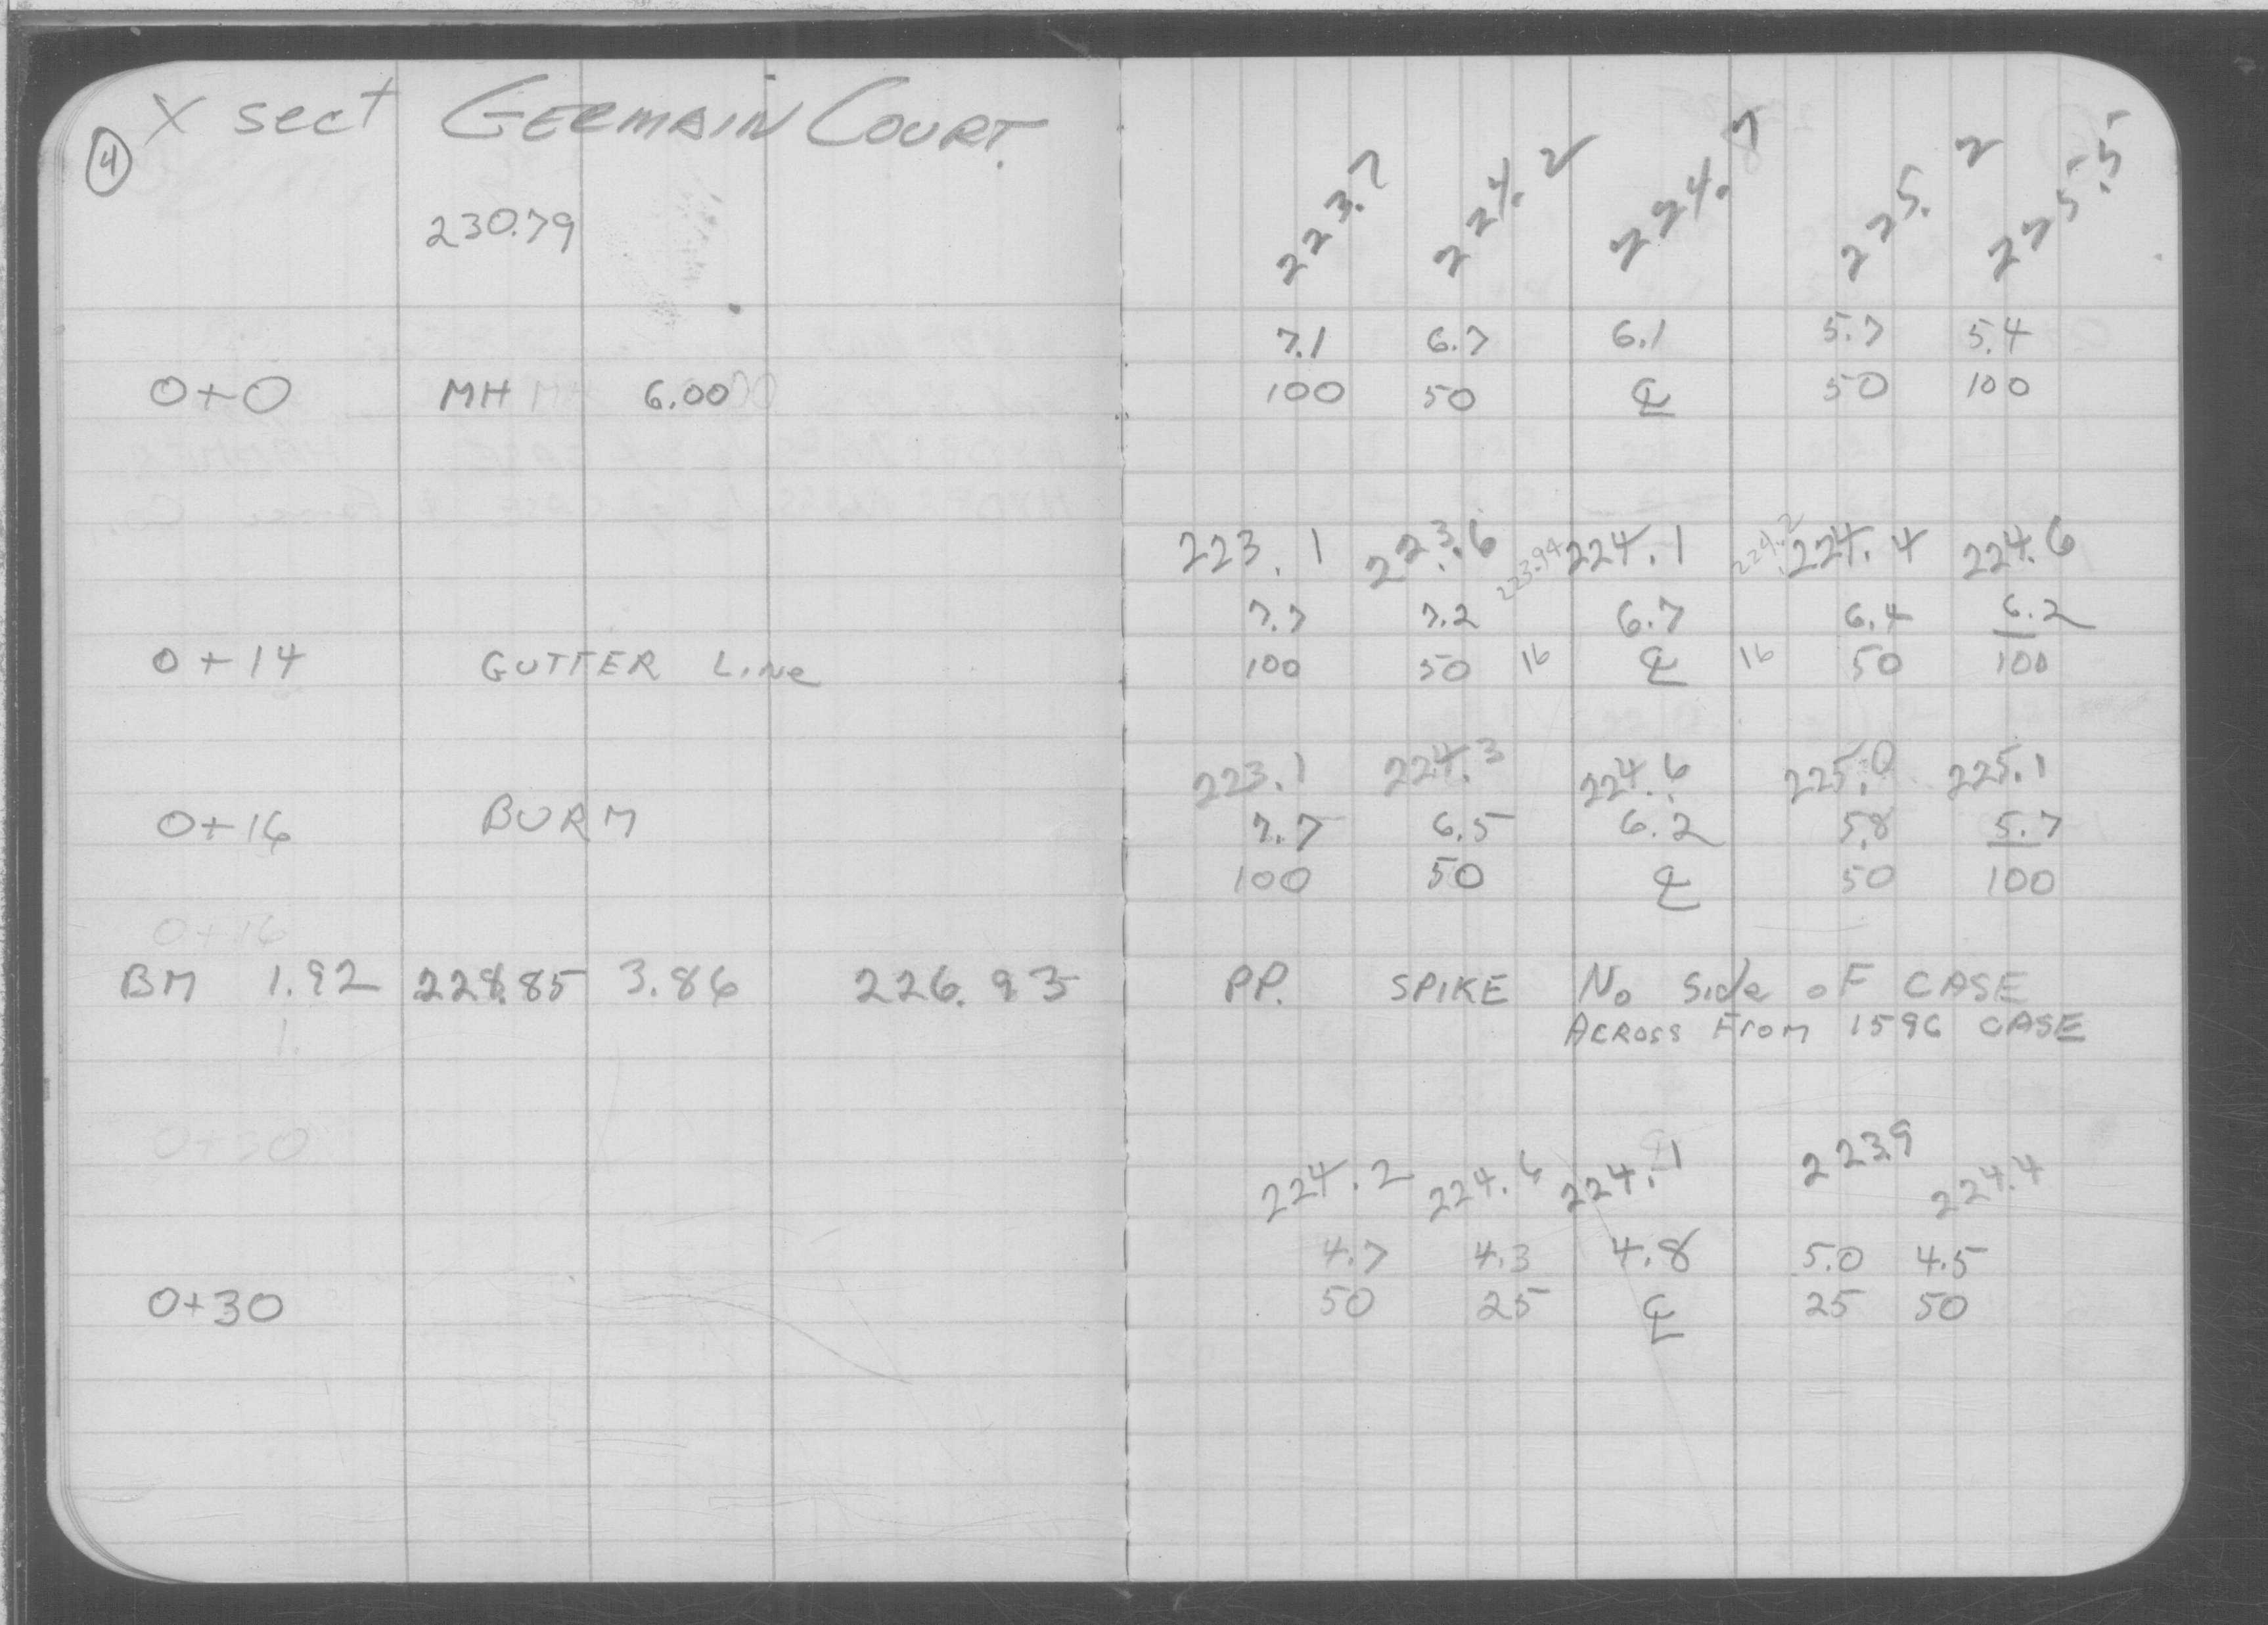 X sect GERMAIN COURT.
4
230.79
223.7 224.2 224.7 225.2 225.5
7.1 6.7 6.1 5.7 5.4
0+0 MH 6.00 100 50 ℄ 50 100
223.1 223.6 223.94 224.1 224.2 224.4 224.6
7.7 7.2 6.7 6.4 6.2
0+14 GUTTER LINe 100 50 16 ℄ 16 50 100
223.1 224.3 224.6 225.0 225.1
0+16 BURM 7.7 6.5 6.2 5.8 5.7
100 50 ℄ 50 100
0+16
BM 1.92 228.85 3.86 226.93 PP. SPIKE No Side oF CASE
1.
ACROSS From 1596 CASE
0+30
224.2 224.6 224.1 223.9 224.4
4.7 4.3 4.8 5.0 4.5
0+30 50 25 ℄ 25 50